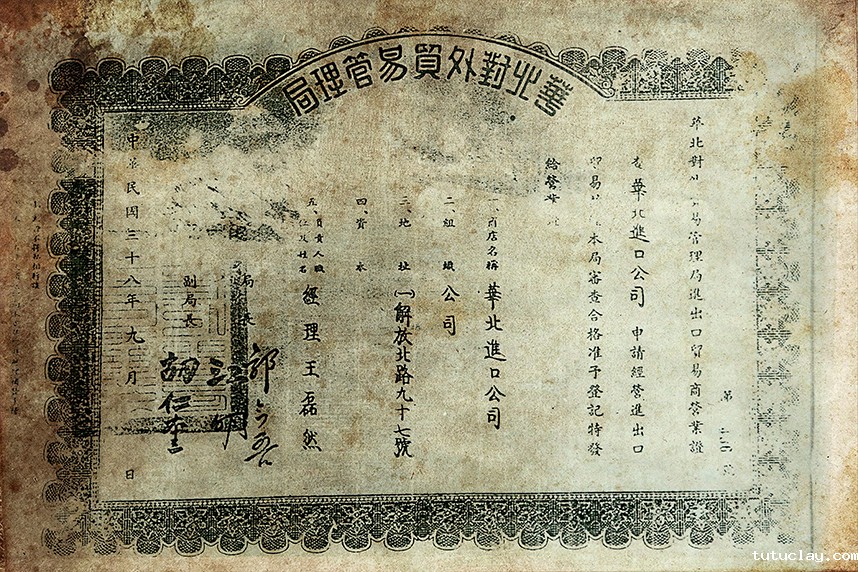 華北對外貿易管理局
華北對外貿易管理局進出口貿易商營業證
第
查華北進口公司申請經營進出口
貿易 本局審查合格准予登記特發
給營業
一、商店名稱 華北進口公司
二、組織 公司
三、地址 (一)解放北路九十七號
四、資本
五、負責人職位及姓名 經理王磊然
局長
副局長
胡仁奎
江明
中華民國三十八年九月 日
tutuclay.com